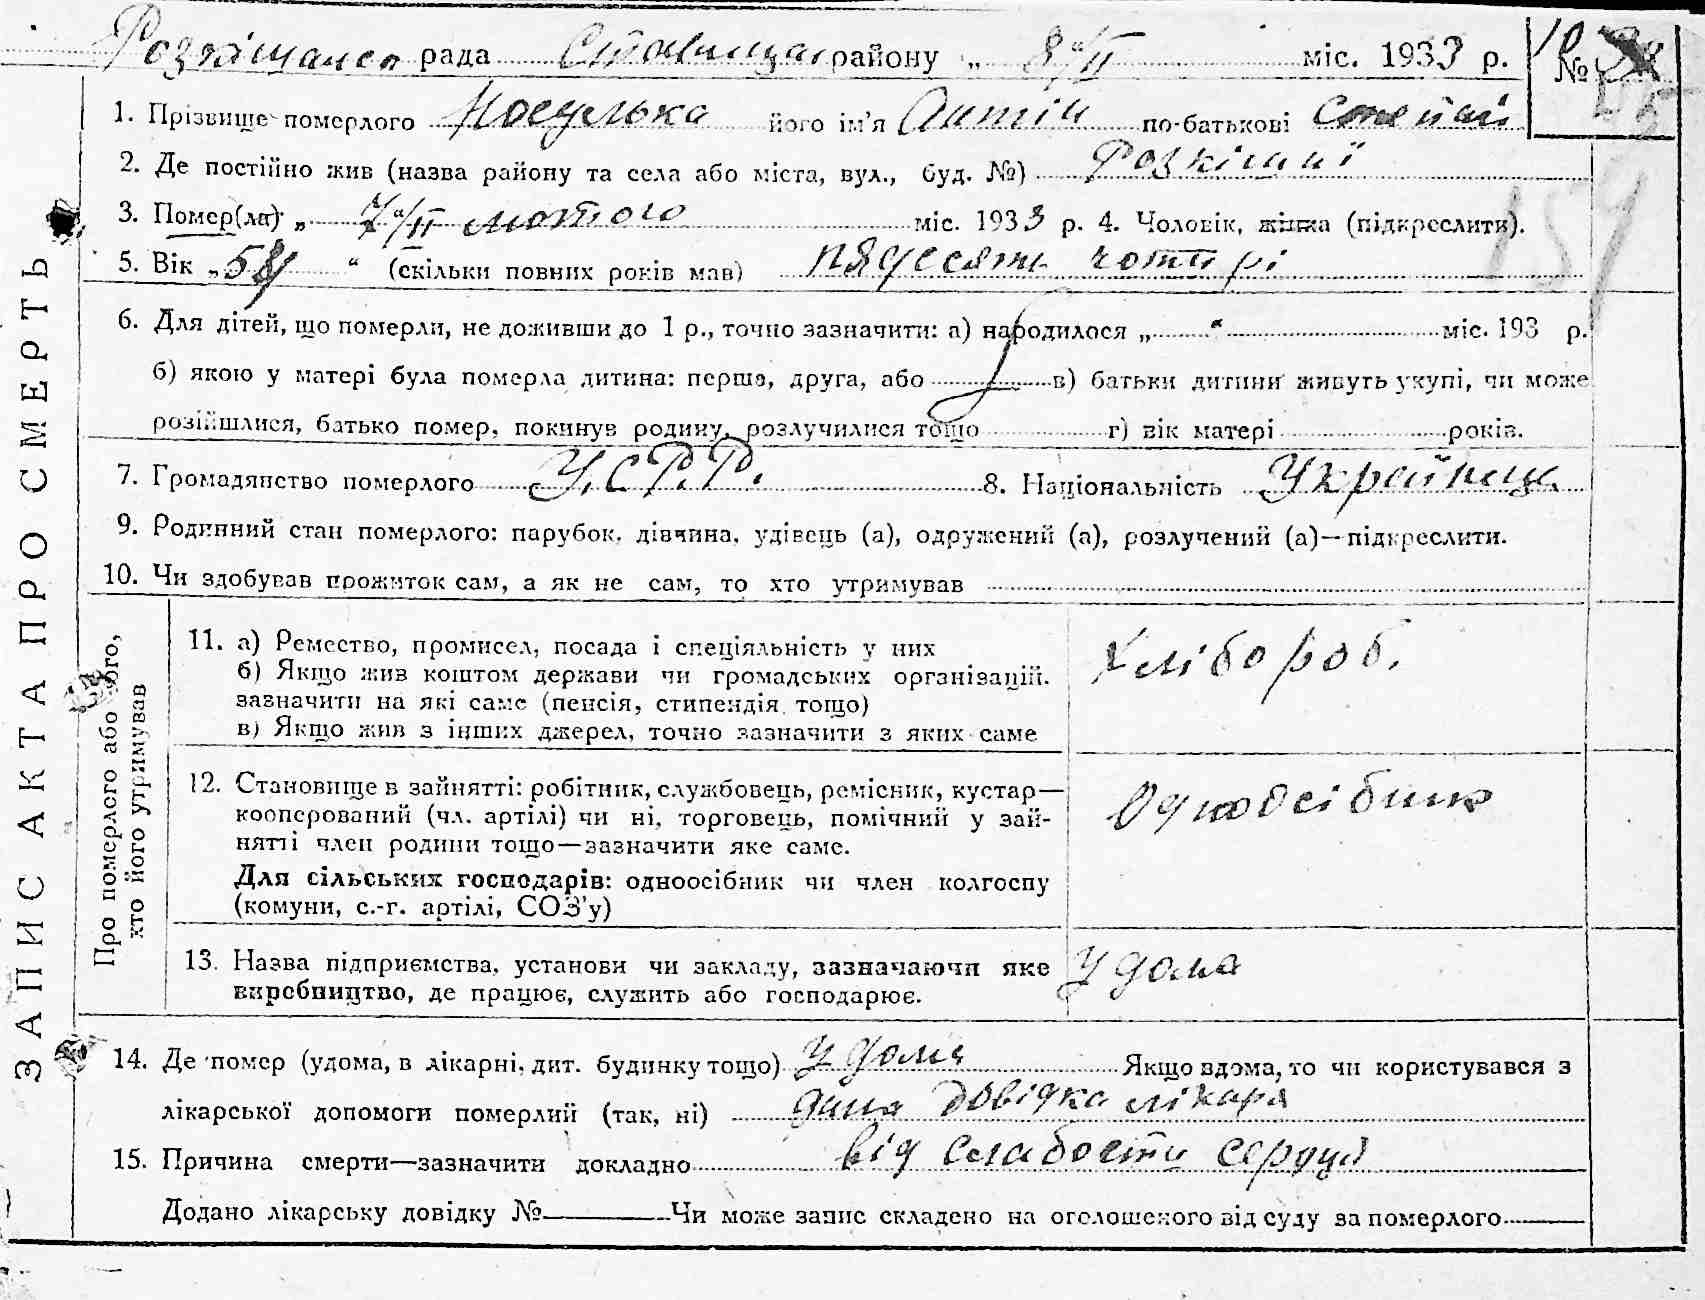 Розкішанськ рада Ставищан району „ 8/ІІ " міс. 1933 р. № 10
1. Прізвище померлого Носулька його ім'я Антін по-батькові Степан
2. Де постійно жив (назва району та села або міста, вул., буд. №) Розкішні
3. Помер(ла) „ 7/ІІ " лютого міс. 1933 р. 4. Чоловік, жінка (підкреслити).
5. Вік „54 " (скільки повних років мав) пядесять чотирі
159
6. Для дітей, що померли, не доживши до 1 р., точно зазначити: а) народилося „ " міс. 193 р.
б) якою у матері була померла дитина: перша, друга, або в) батьки дитини живуть укупі, чи може
розійшлися, батько помер, покинув родину, розлучилися тощо г) вік матері років.
7. Громадянство померлого У.С.Р.Р. 8. Національність Українець
9. Родинний стан померлого: парубок, дівчина, удівець (а), одружений (а), розлучений (а)—підкреслити.
10. Чи здобував прожиток сам, а як не сам, то хто утримував
11. а) Ремество, промисел, посада і спеціяльність у них
б) Якщо жив коштом держави чи громадських організацій.
зазначити на які саме (пенсія, стипендія тощо)
в) Якщо жив з інших джерел, точно зазначити з яких саме
Хлібороб.
12. Становище в зайнятті: робітник, службовець, ремісник, кустар—
кооперований (чл. артілі) чи ні, торговець, помічний у зай-
нятті член родини тощо—зазначити яке саме.
Для сільських господарів: одноосібник чи член колгоспу
(комуни, с.-г. артілі, СОЗ'у)
Одноосібник
13. Назва підприємства, установи чи закладу, зазначаючи яке
виробництво, де працює, служить або господарює.
У дома
14. Де помер (удома, в лікарні, дит. будинку тощо) У дома Якщо вдома, то чи користувався з
лікарської допомоги померлий (так, ні) дана довідка лікаря
15. Причина смерти—зазначити докладно від слабости сердця
Додано лікарську довідку № Чи може запис складено на оголошеного від суду за померлого
ЗАПИС АКТА ПРО СМЕРТЬ
Про померлого або того,
хто його утримував